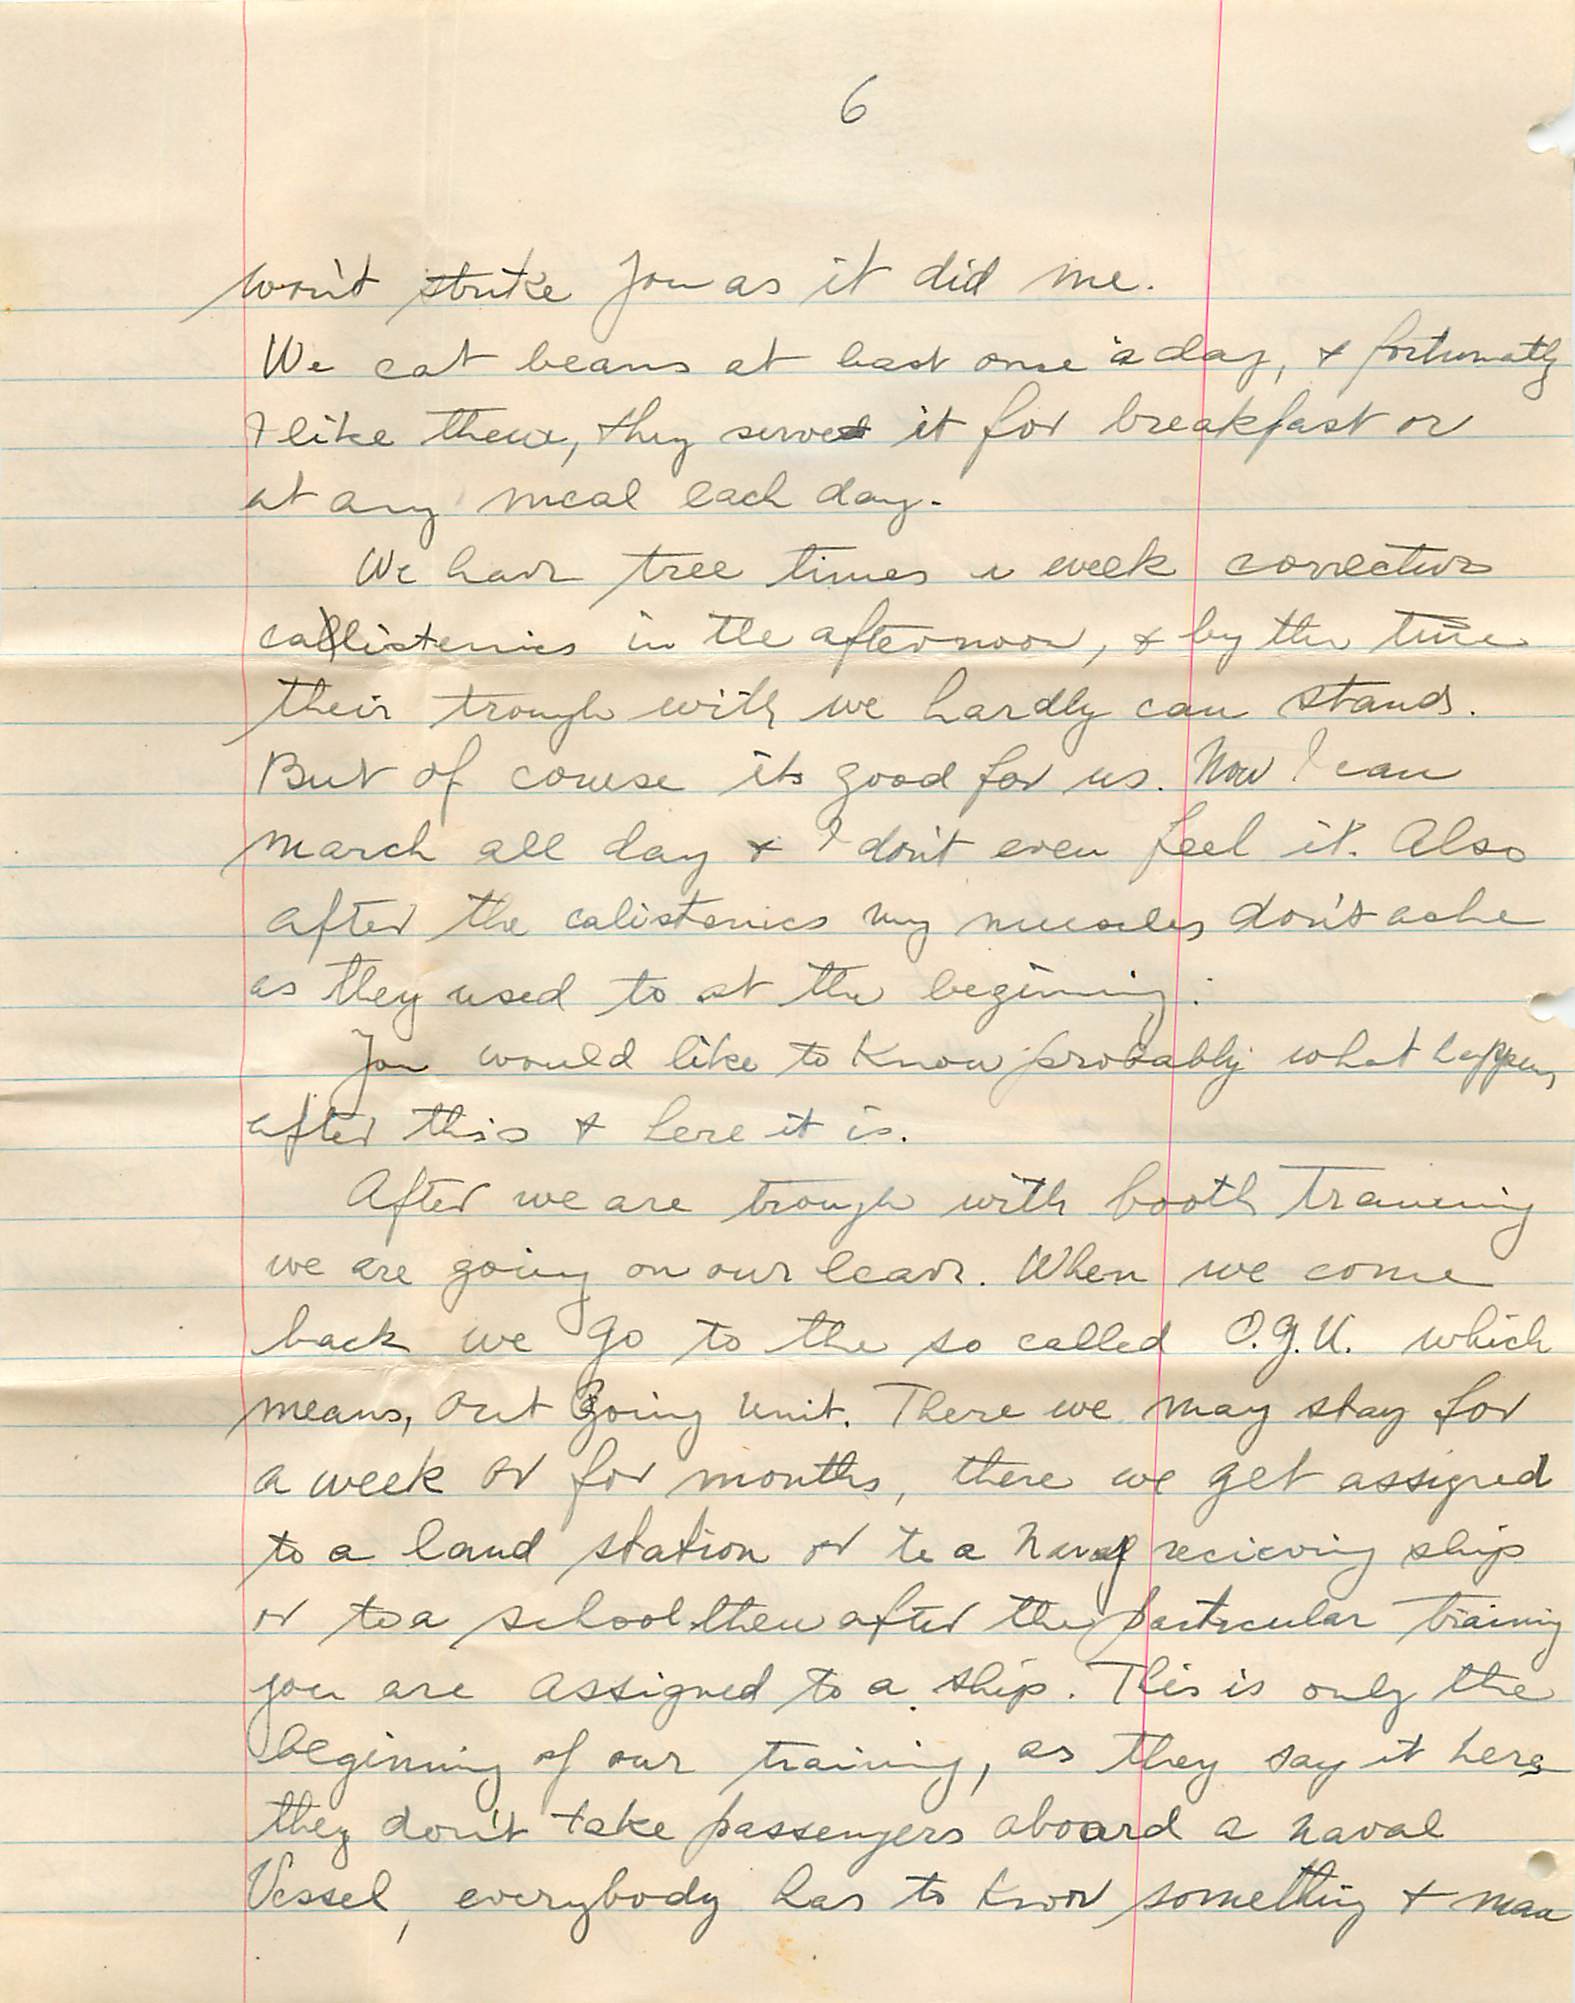 6
won't strike you as it did me.
We eat beans at least once a day, & fortunatly
I like them, they serve it for breakfast or
at any meal each day.
We have tree times a week corrective
callistenics in the afternoon, & by the time
their trough with we hardly can stand.
But of course its good for us. Now I can
march all day & I don't even feel it. Also
after the calistenics my muscles don't ache
as they used to at the begining.
You would like to know probably what happens
after this & here it is.
After we are trough with booth training
we are going on our leave. When we come
back we go to the so called O.G.U. which
means, Out Going Unit. There we may stay for
a week or for months, there we get assigned
to a land station or to a naval recieving ship
or to a school then after the particular training
you are assigned to a ship. This is only the
beginning of our training, as they say it here
they don't take passengers aboard a naval
Vessel, everybody has to know something & man